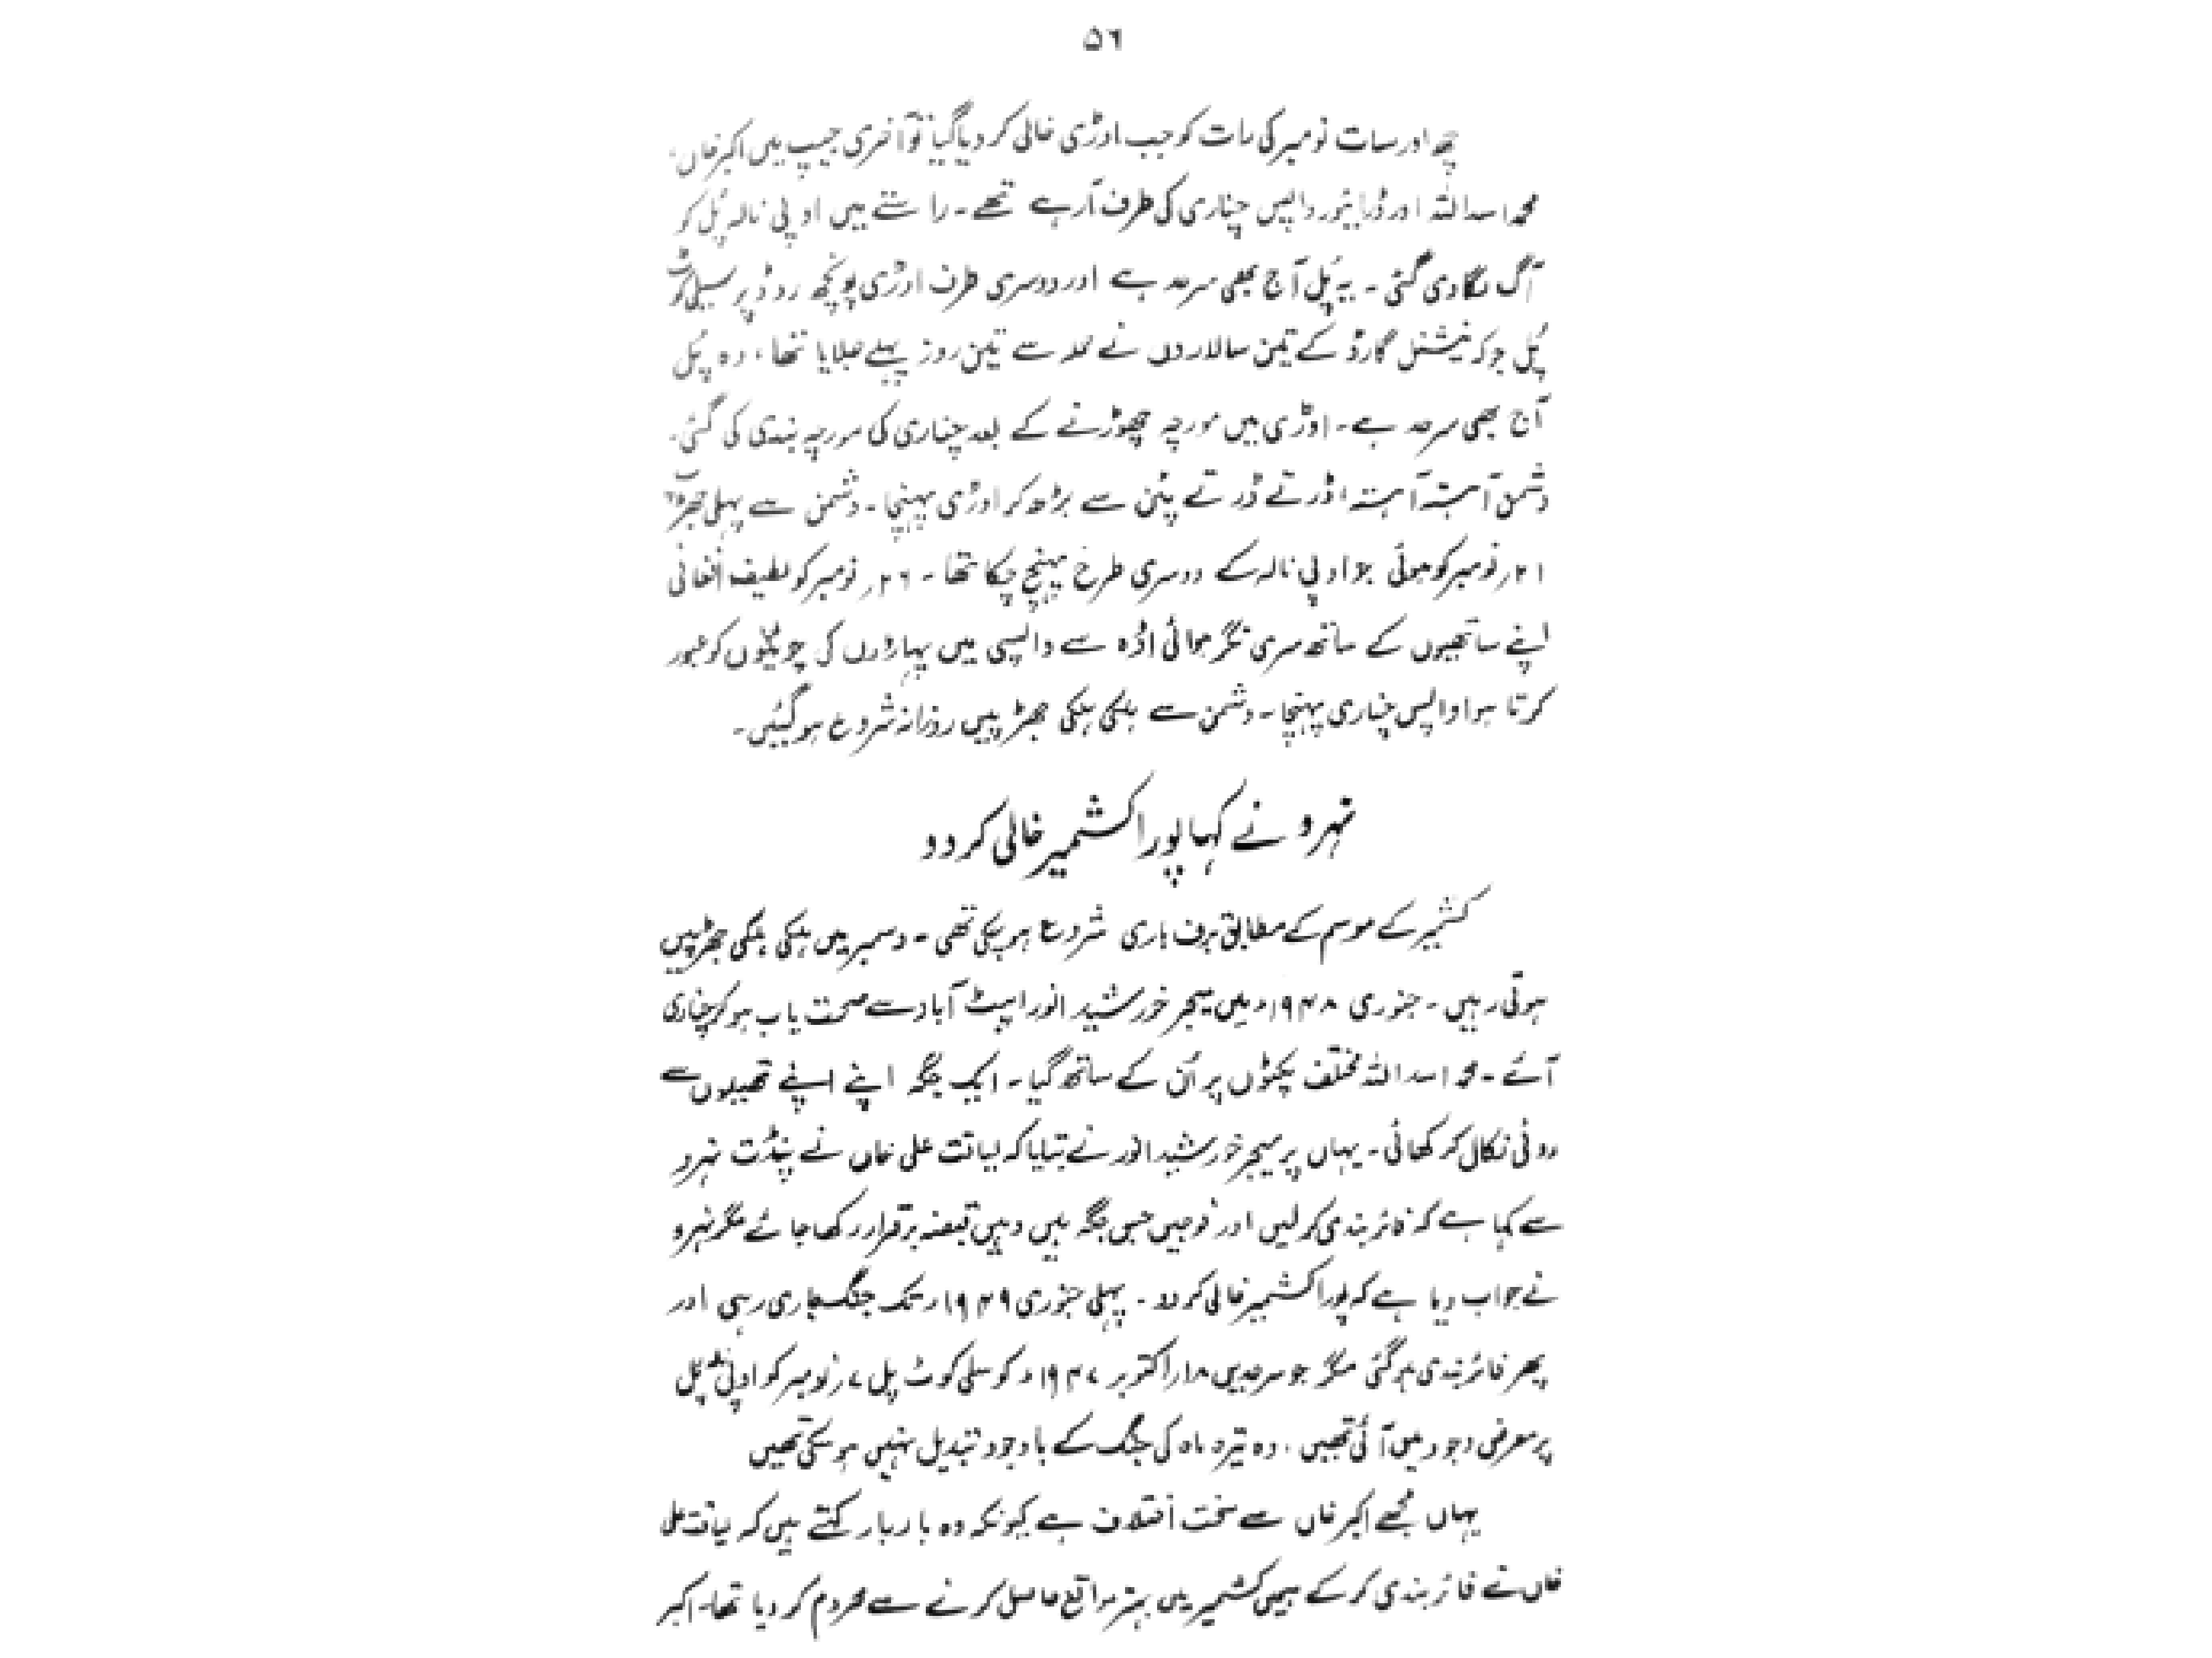 ۵٦
چھ اور سات نومبر کی رات کو جب اوڑی خالی کر دیا گیا تو آخری جیپ میں اکبر خاں،
محمد اسد اللہ اور ڈرائیور واپس چناری کی طرف آرہے تھے۔ راستے میں اوپی نالہ پُل کو
آگ لگا دی گئی ۔ یہ پُل آج بھی سرحد ہے اور دوسری طرف اوڑی پونچھ روڈ پر سیلی کوٹ
پُل جو کہ نیشنل گارڈ کے تین سالاروں نے حملہ سے تین روز پہلے جلایا تھا، وہ پُل
آج بھی سرحد ہے۔ اوڑی میں مورچہ چھوڑنے کے بعد چناری کی مورچہ بندی کی گئی۔
دشمن آہستہ آہستہ، ڈرتے ڈرتے پٹن سے بڑھ کر اوڑی پہنچا۔ دشمن سے پہلی جھڑپ
۲۱؍ نومبر کو ہوئی جو اوپی نالہ کے دوسری طرح پہنچ چکا تھا۔ ۲۶؍ نومبر کو لطیف افغانی
اپنے ساتھیوں کے ساتھ سری نگر ہوائی اڈہ سے واپسی میں پہاڑوں کی چوٹیوں کو عبور
کرتا ہوا واپس چناری پہنچا۔ دشمن سے ہلکی ہلکی جھڑپیں روزانہ شروع ہو گئیں۔
نہرو نے کہا پورا کشمیر خالی کر دو
کشمیر کے موسم کے مطابق برف باری شروع ہو چکی تھی ۔ دسمبر میں ہلکی ہلکی جھڑپیں
ہوتی رہیں ۔ جنوری ۱۹۴۸ء میں میجر خورشید انور ایبٹ آباد سے صحت یاب ہو کر چناری
آئے ۔ محمد اسد اللہ مختلف پکٹوں پر اُن کے ساتھ گیا۔ ایک جگہ اپنے اپنے تھیلوں سے
روٹی نکال کر کھائی۔ یہاں پر میجر خورشید انور نے بتایا کہ لیاقت علی خاں نے پنڈت نہرو
سے کہا ہے کہ فائر بندی کر لیں اور فوجیں جس جگہ ہیں وہیں قبضہ برقرار رکھا جائے مگر نہرو
نے جواب دیا ہے کہ پورا کشمیر خالی کر دو ۔ پہلی جنوری ۱۹۴۹ء تک جنگ جاری رہی اور
پھر فائر بندی ہو گئی مگر جو سرحدیں ۱۸؍اکتوبر ۱۹۴۷ء کو سلی کوٹ پل ۷؍ نومبر کو اوپی پُل
پر معرض وجود میں آئی تھیں ، وہ تیرہ ماہ کی جنگ کے باوجود تبدیل نہیں ہو سکی تھیں
یہاں مجھے اکبر خاں سے سخت اختلاف ہے کیونکہ وہ بار بار کہتے ہیں کہ لیاقت علی
خاں نے فائر بندی کر کے ہمیں کشمیر میں بہتر مواقع حاصل کرنے سے محروم کر دیا تھا۔ اکبر